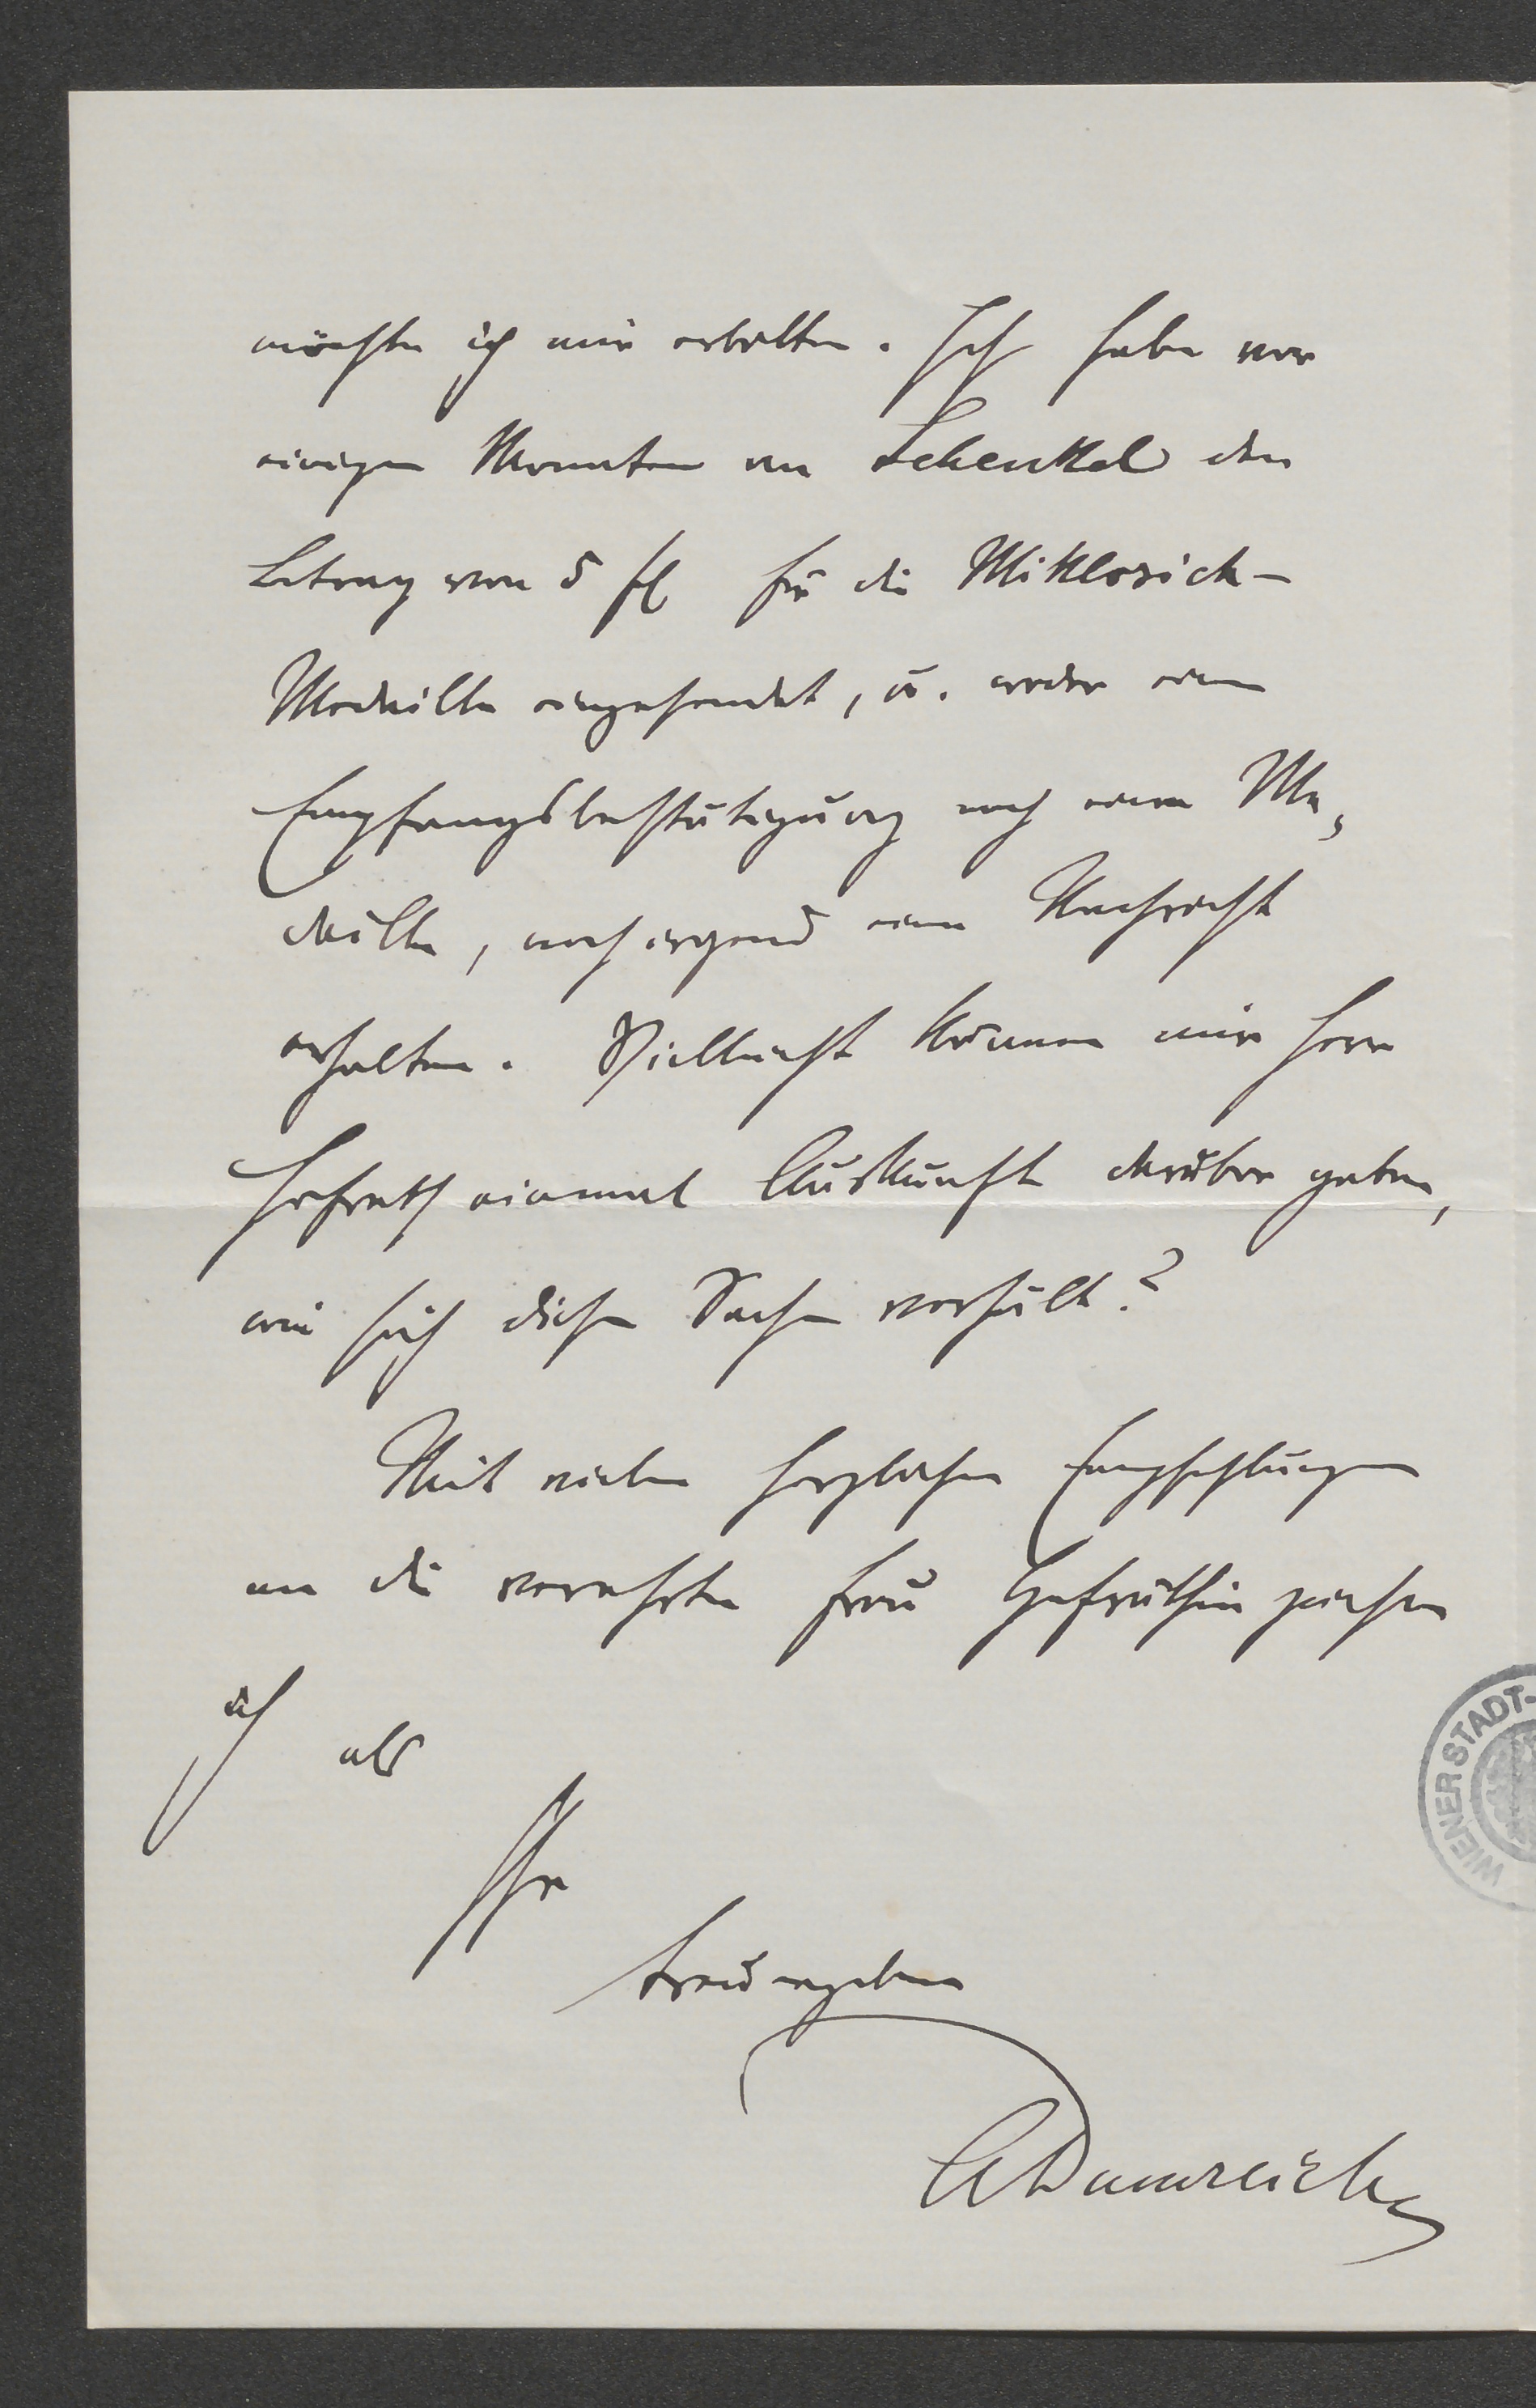 möchte ich mir erbitten. Ich habe vor
einigen Monaten an Schenkel den
Betrag von 5 fl für die Miklosich-
Medaille eingesendet, u. weder eine
Empfangsbestätigung noch eine Me-
daille, noch irgend eine Nachricht
erhalten. Vielleicht können mir Herr
Hofrath einmal Auskunft darüber geben,
wie sich diese Sache verhält?
Mit vielen herzlichen Empfehlungen
an die verehrte Frau Hofräthin zeichne
ich als
Ihr
treu ergebener
Dumreicher
WIENER STADT-